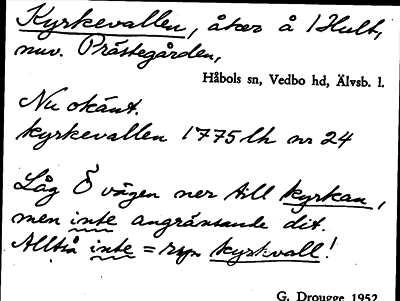 Kyrkevallen, åker å Hult,
nuv. Prästegården,
Håbols sn, Vedbo hd, Älvsb. l.
Nu okänt.
kyrkevallen 1775 lh nr 24
Låg Ö vägen ner till kyrkan,
men inte angränsande dit.
Alltså inte = kyrkvall!
G. Drougge 1952